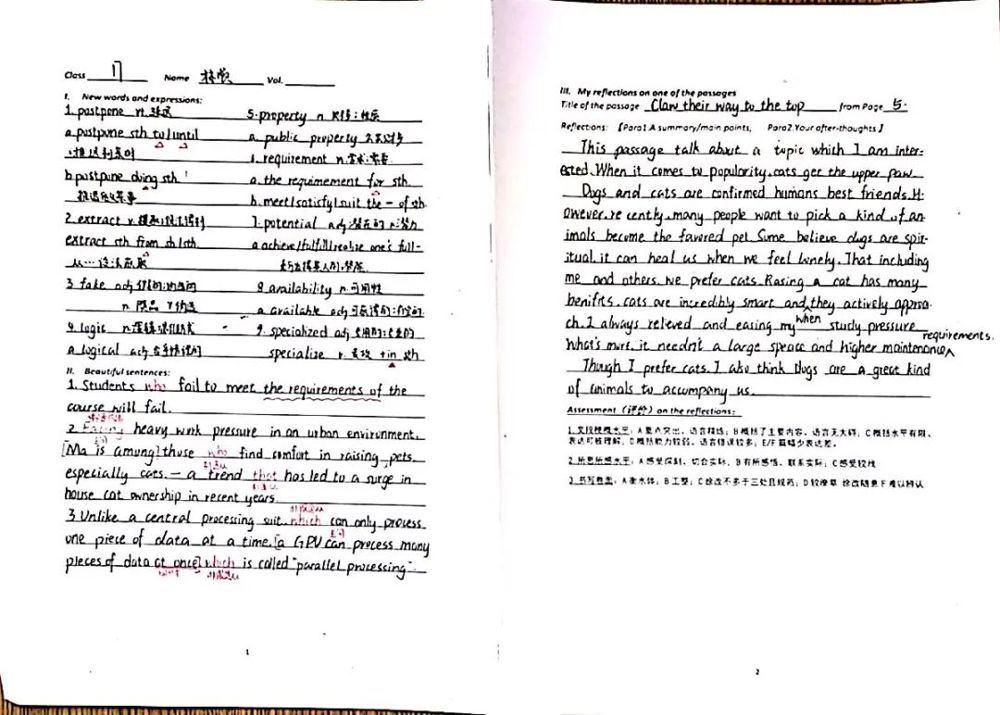 Class 17 Name Vol.
I. New words and expressions:
1. postpone vt. 推迟
a. postpone sth to/until
推迟到某时
b. postpone doing sth
推迟做某事
2. extract v.
extract sth from sb/sth.
从…
3. fake adj
n.
9. logic n.
a. logical adj
5. property n
a. public property
1. requirement n.
a. the requirnement for sth.
b. meet/satisfy/suit the — of sth.
7. potential adj 潜在的 n. 潜力
a. achieve/fulfill/realize one's full-
8. availability n. 可用性
a. available adj
9. specialized adj 专用的
specialise v. 专攻 + in sth
II. Beautiful sentences:
1. Students who fail to meet the requirements of the
course will fail.
2. Facing heavy work pressure in an urban environment.
[Ma is among] those who find comfort in raising pets,
especially cats. — a trend that has led to a surge in
house cat ownership in recent years.
3. Unlike a central processing suit. which can only process
one piece of data at a time, [a GPU can process many
pieces of data at once] which is called "parallel processing".
1
III. My reflections on one of the passages
Title of the passage Claw their way to the top from Page 5.
Reflections: 【Para1.A summary/main points, Para2.Your after-thoughts.】
This passage talk about a topic which I am inter-
ested. When it comes to popularity, cats get the upper paw.
Dogs and cats are confirmed humans best friends. H-
owever. recently, many people want to pick a kind of an-
imals become the favored pet. Some believe dogs are spir-
itual. it can heal us when we feel lonely. That including
me and others. we prefer cats. Rasing a cat has many
benifits. cats are incredibly smart and they actively approa-
ch. I always releved and easing my when study pressure
What's more, it needn't a large speace and higher maintenance requirements.
Though I prefer cats. I also think dogs are a great kind
of animals to accompany us.
Assessment (评价) on the reflections:
1. 文段梗概水平: A 要点突出、语言精练; B 概括了主要内容、语言无大碍; C 概括水平有限、
表达可被理解; D 概括能力较弱、语言错误较多; E/F 篇幅少表达差。
2. 所思所感水平: A 感受深刻、切合实际、B 有所感悟、联系实际; C 感受较浅
3. 书写卷面: A 衡水体; B 工整; C 涂改不多于三处且规范; D 较潦草 涂改随意 F 难以辨认
2